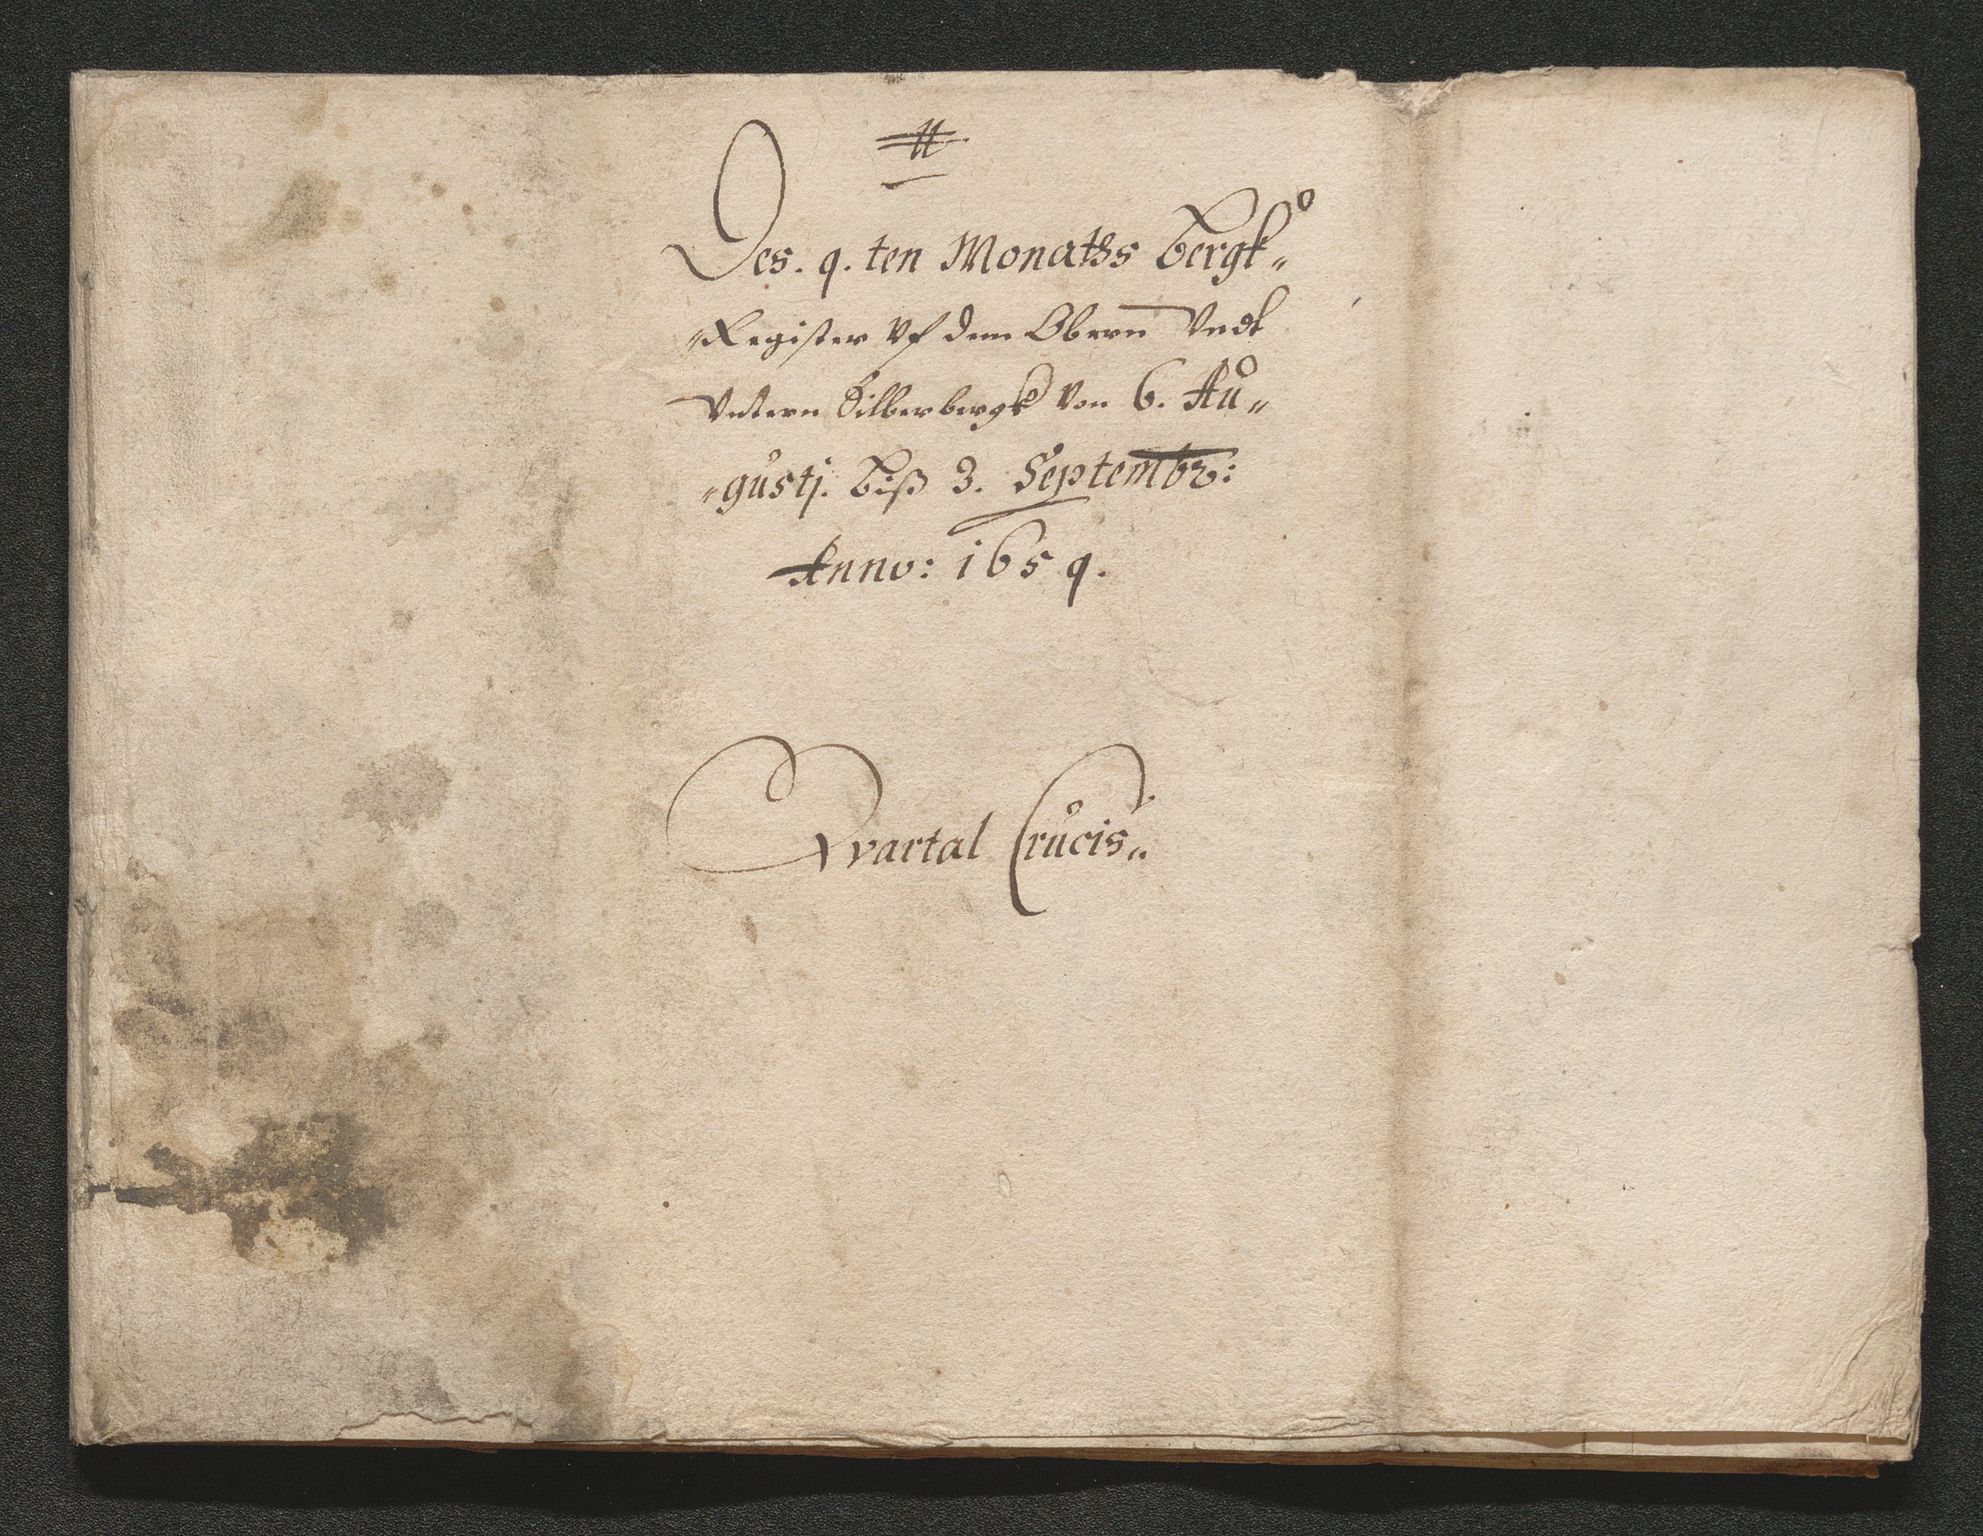 Des. 9. ten Monaths Bergk„
„Register Vf dem Obern Vndt
Vntern Silberbergk Von 6. Au„
„gustj. Biß 3. Septembr:
Anno: 1659.
Qvartal Crucis„